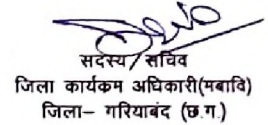 सदस्य/सचिव
जिला कार्यक्रम अधिकारी(मबावि)
जिला– गरियाबंद (छ.ग.)